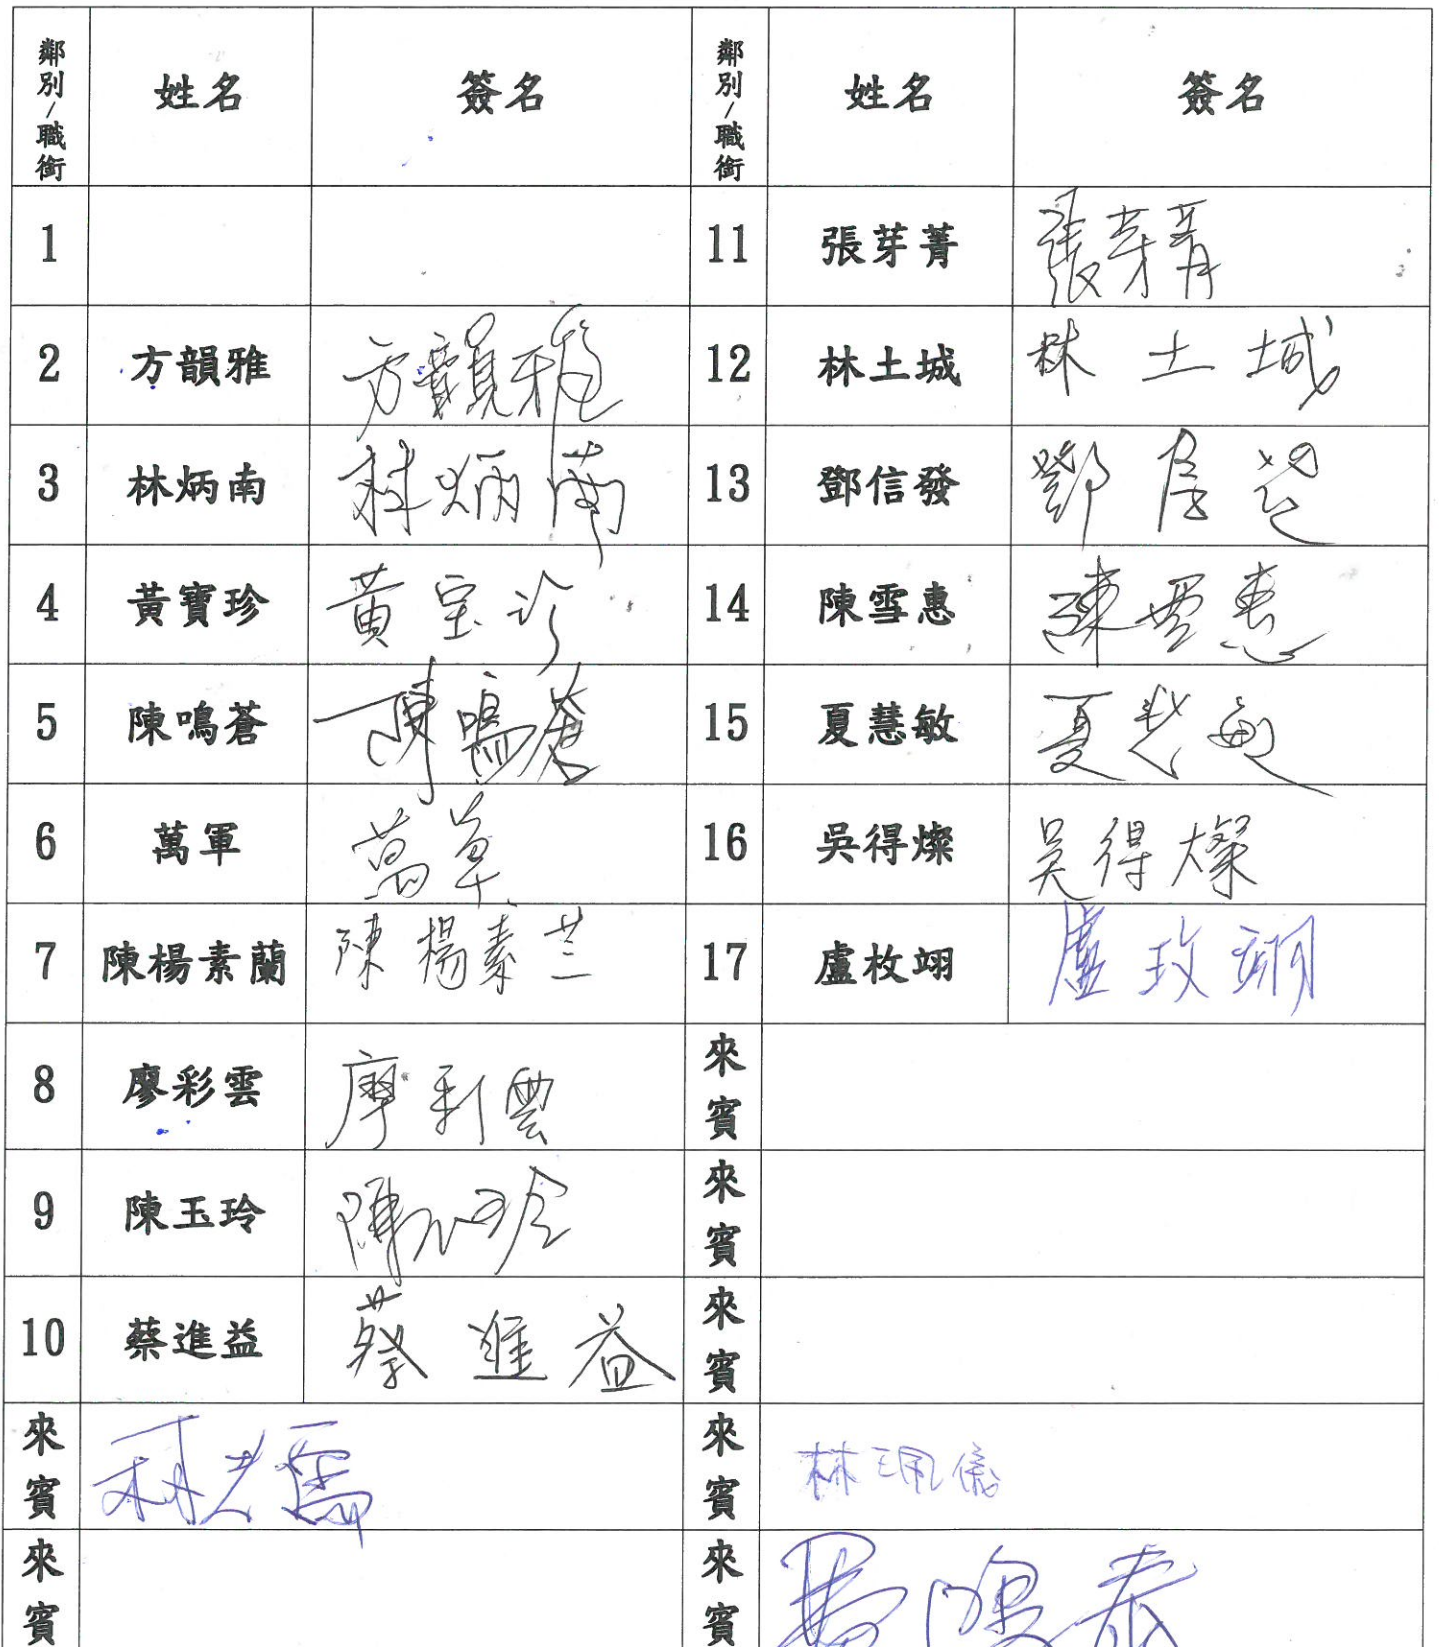 鄰別/職銜 姓名 簽名 鄰別/職銜 姓名 簽名
1 11 張芽菁 張芽菁
2 方韻雅 方韻雅 12 林土城 林土城
3 林炳南 林炳南 13 鄧信發 鄧信發
4 黃寶珍 黃宝珍 14 陳雪惠 陳雪惠
5 陳鳴蒼 陳鳴蒼 15 夏慧敏 夏慧敏
6 萬軍 萬軍 16 吳得燦 吳得燦
7 陳楊素蘭 陳楊素兰 17 盧枚翊 盧玫翊
8 廖彩雲 廖彩雲 來賓
9 陳玉玲 陳玉玲 來賓
10 蔡進益 蔡進益 來賓
來賓 來賓 林珮儀
來賓 來賓